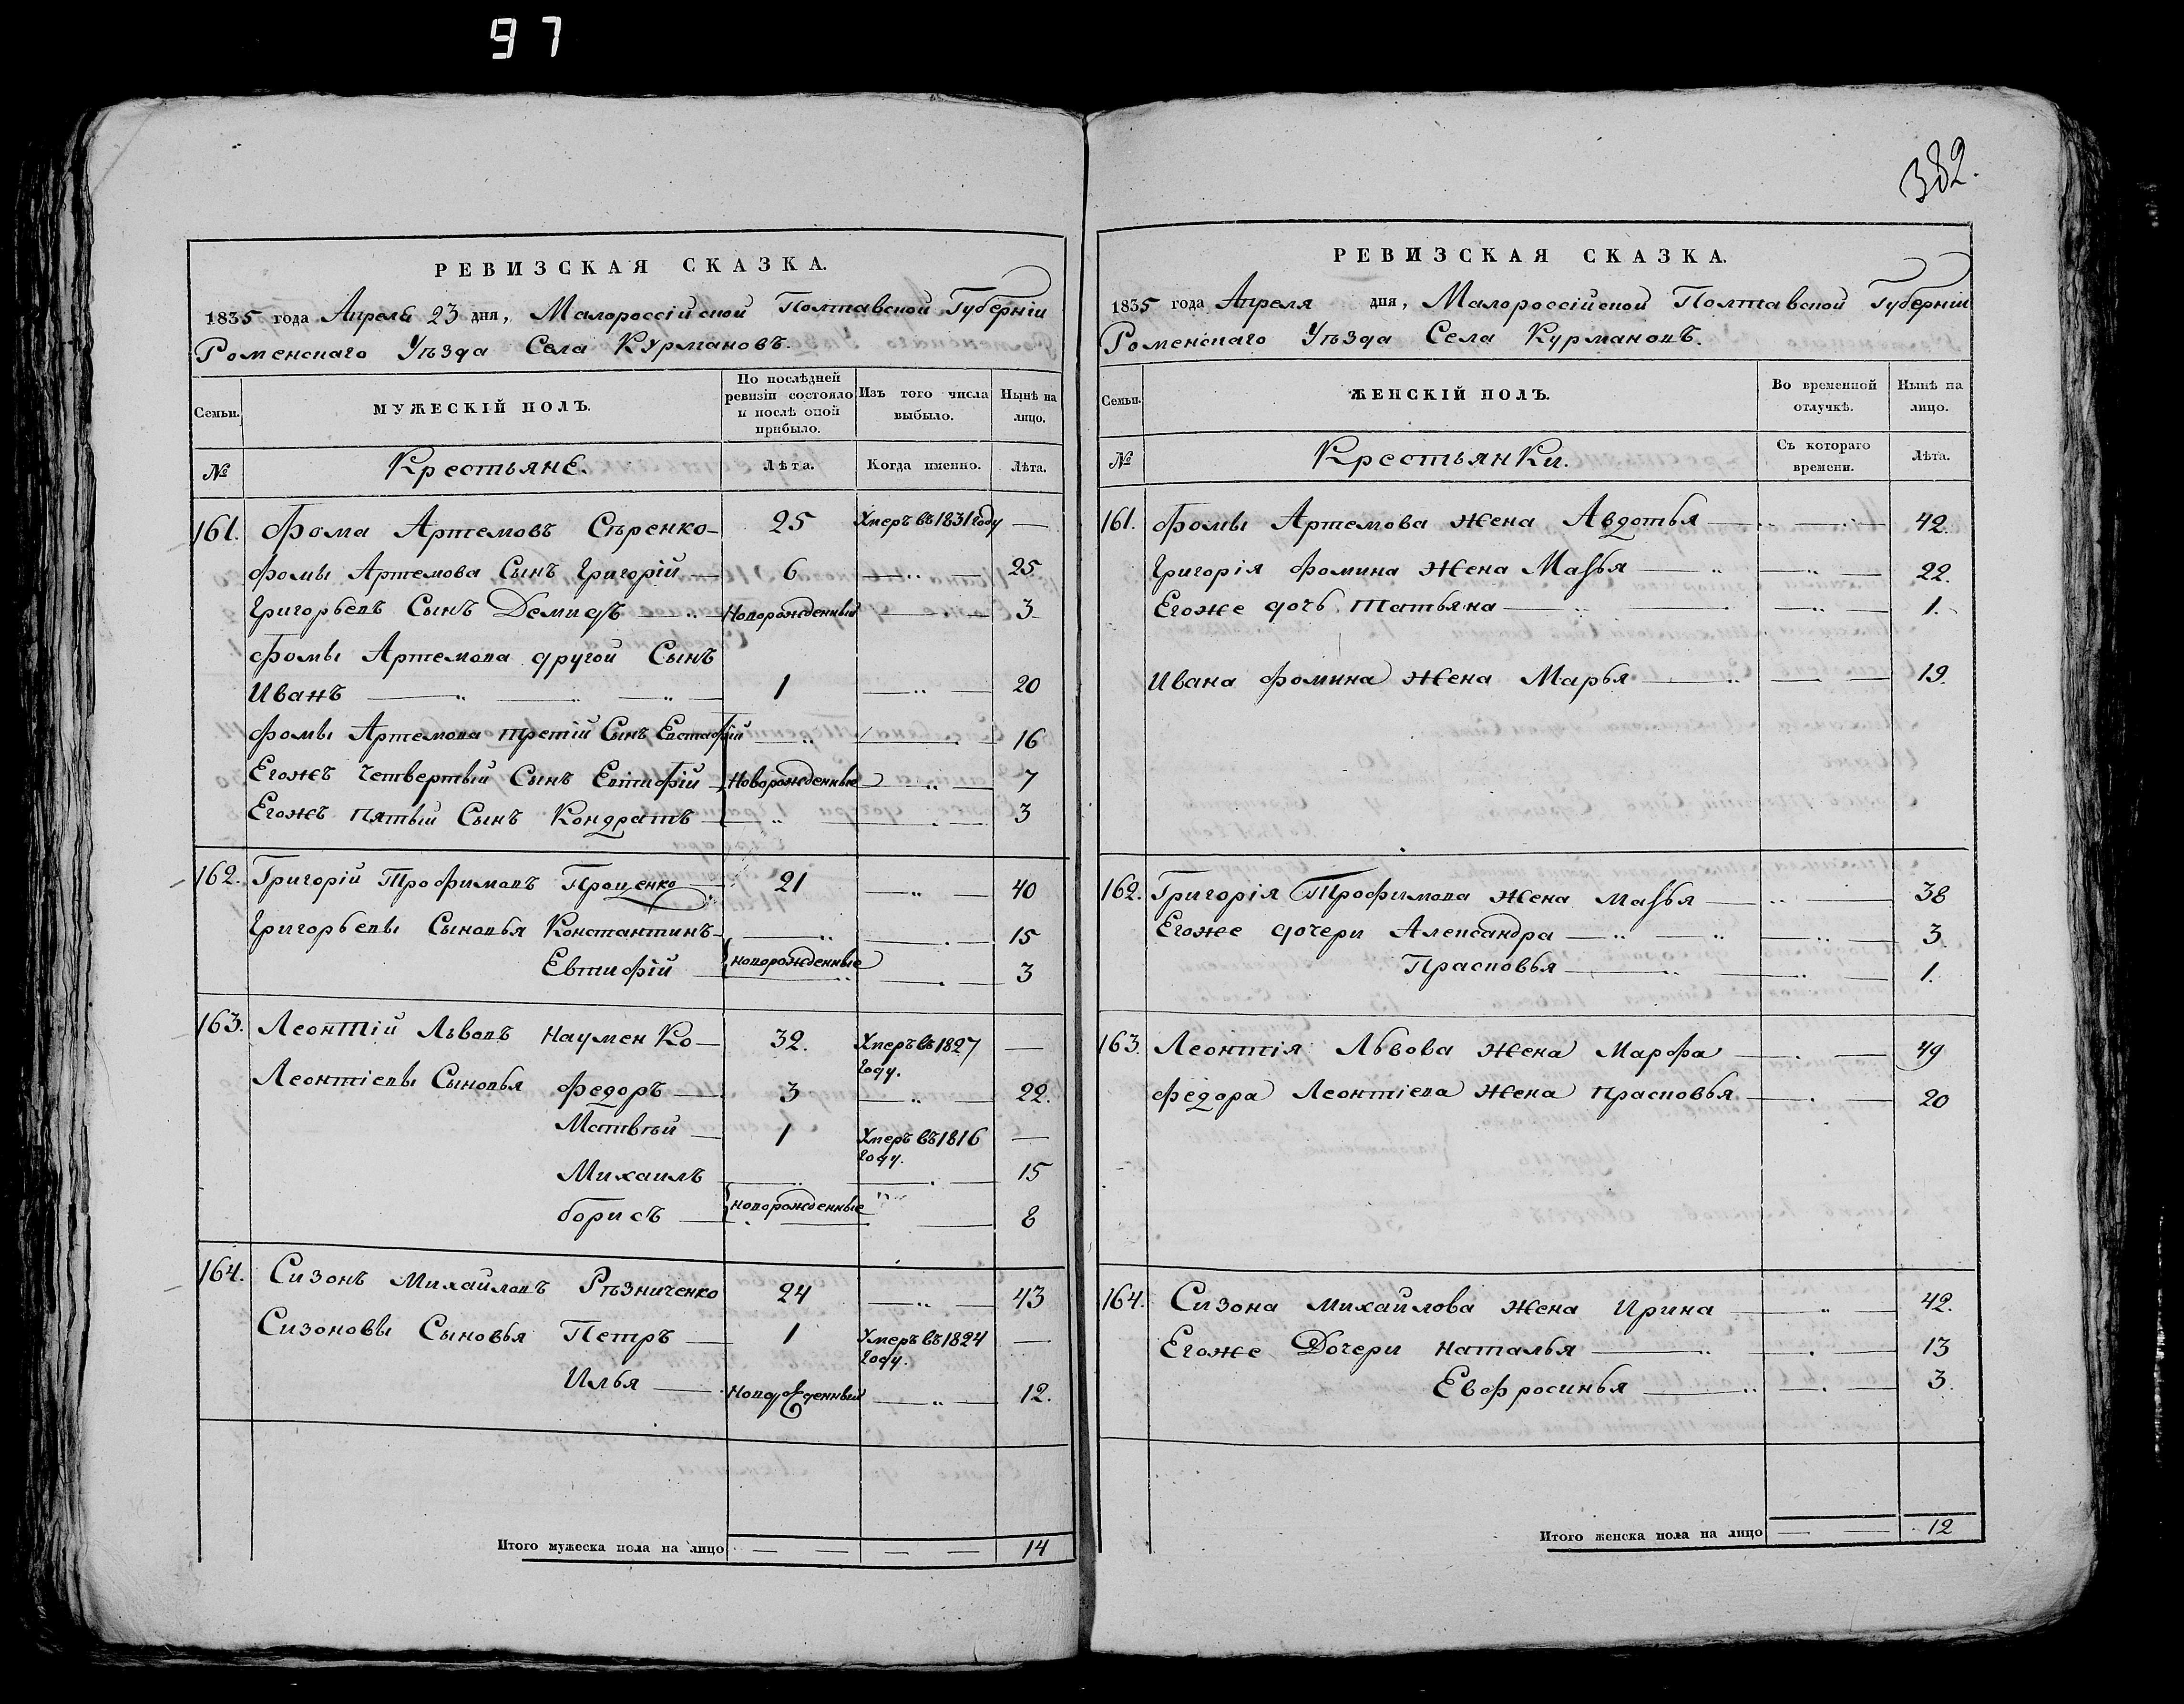 97
382.
РЕВИЗСКАЯ СКАЗКА.
1835 года Апреля 23 дня, Малороссійской Полтавской Губерніи
Роменскаго Уѣзда Села Курмановъ.
Семьи.
МУЖЕСКІЙ ПОЛЪ.
По послѣдней ревизіи состояло и послѣ оной прибыло.
Изъ того числа выбыло.
Нынѣ на лицо.
№ Крестьяне. Лѣта. Когда именно. Лѣта.
161. Фома Артемовъ Сѣренко — 25 Умеръ въ 1831 году —
Фомы Артемова Сынъ Григорій — 6 — 25
Григорьевъ Сынъ Демидъ — Новорожденный — 3
Фомы Артемова другой Сынъ
Иванъ — 1 — 20
Фомы Артемова третій Сынъ Евстафій — 16
Егожъ четвертый Сынъ Евтифій — Новорожденные — 7
Егожъ пятый Сынъ Кондратъ — 3
162. Григорій Трофимовъ Проценко 21 — 40
Григорьевы Сыновья Константинъ — 15
Евтифій — новорожденные — 3
163. Леонтій Львовъ Науменко — 32. Умеръ въ 1827 году. —
Леонтіевы Сыновья Федоръ — 3 — 22.
Матвѣй — 1 Умеръ въ 1816 году. —
Михаилъ — 15
Борисъ — новорожденные — 8
164. Сизонъ Михайловъ Рѣзниченко 24 — 43
Сизоновы Сыновья Петръ — 1 Умеръ въ 1824 году. —
Илья — Новорожденный — 12.
Итого мужеска пола на лицо — — — — 14
РЕВИЗСКАЯ СКАЗКА.
1835 года Апреля дня, Малороссійской Полтавской Губерніи
Роменскаго Уѣзда Села Курмановъ.
Семьи.
ЖЕНСКІЙ ПОЛЪ.
Во временной отлучкѣ.
Нынѣ на лицо.
№ Крестьянки. Съ котораго времени. Лѣта.
161. Фомы Артемова жена Авдотья — 42.
Григорія Фомина жена Марья — 22.
Егоже дочь Татьяна — 1.
Ивана Фомина жена Марья — 19.
162. Григорія Трофимова жена Марья — 38
Егоже дочери Александра — 3.
Прасковья — 1.
163. Леонтія Львова жена Марфа — 49
Федора Леонтіева жена Прасковья — 20
164. Сизона Михайлова жена Ирина — 42.
Егоже Дочери Наталья — 13
Евфросинья — 3.
Итого женска пола на лицо — — 12